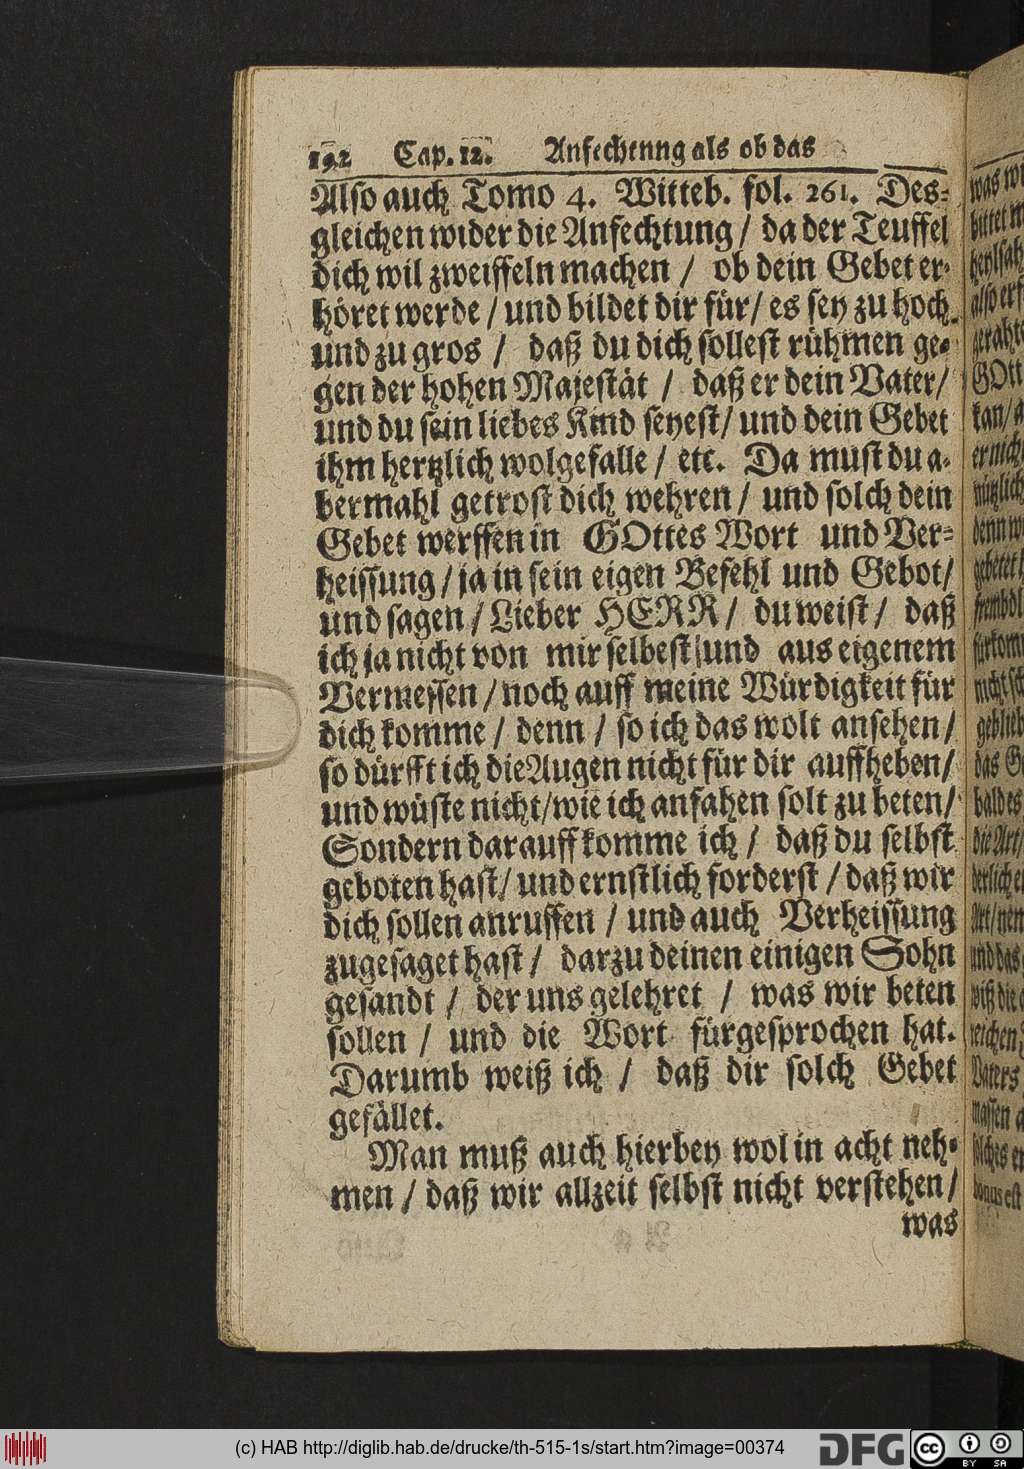 192 Cap. 12. Anfechtnng als ob das
Also auch Tomo 4. Witteb. fol. 261. Des⸗
gleichen wider die Anfechtung / da der Teuffel
dich wil zweiffeln machen / ob dein Gebet er⸗
höret werde / und bildet dir für / es sey zu hoch
und zu gros / daß du dich sollest rühmen ge⸗
gen der hohen Majestät / daß er dein Vater /
und du sein liebes Kind seyest / und dein Gebet
ihm hertzlich wolgefalle / etc. Da must du a⸗
bermahl getrost dich wehren / und solch dein
Gebet werffen in GOttes Wort und Ver⸗
heissung / ja in sein eigen Befehl und Gebot /
und sagen / Lieber HERR / du weist / daß
ich ja nicht von mir selbest / und aus eigenem
Vermessen / noch auff meine Würdigkeit für
dich komme / denn / so ich das wolt ansehen /
so dürfft ich die Augen nicht für dir auffheben /
und wüste nicht / wie ich anfahen solt zu beten /
Sondern darauff komme ich / daß du selbst
geboten hast / und ernstlich forderst / daß wir
dich sollen anruffen / und auch Verheissung
zugesaget hast / darzu deinen einigen Sohn
gesandt / der uns gelehret / was wir beten
sollen / und die Wort fürgesprochen hat.
Darumb weiß ich / daß dir solch Gebet
gefället.
Man muß auch hierbey wol in acht neh⸗
men / daß wir allzeit selbst nicht verstehen /
was
(c) HAB http://diglib.hab.de/drucke/th-515-1s/start.htm?image=00374
DFG
cc BY SA